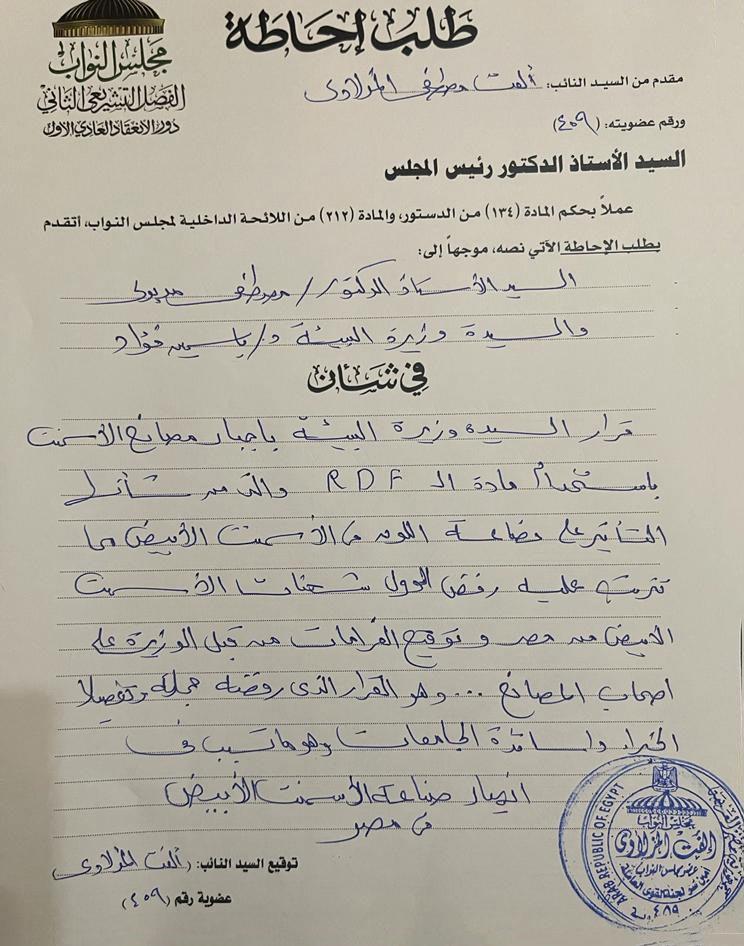 طلب إحاطة
مجلس النواب
الفصل التشريعى الثانى
دور الانعقاد العادى الأول
مقدم من السيد النائب: ألفت مصطفى المزلاوى
ورقم عضويته: (٤٥٩)
السيد الأستاذ الدكتور رئيس المجلس
عملاً بحكم المادة (١٣٤) من الدستور، والمادة (٢١٢) من اللائحة الداخلية لمجلس النواب، أتقدم
بطلب الإحاطة الآتي نصه، موجهاً إلى:
السيد الأستاذ الدكتور / مصطفى مدبولى
والسيدة وزيرة البيئة د/ ياسمين فؤاد
في شأن
قرار السيدة وزيرة البيئة باجبار مصانع الأسمنت
باستخدام مادة الـ RDF والتى من شأنها
التأثير على اللون فى الأسمنت الأبيض مما
ترتب عليه رفض الدول شحنات الأسمنت
الابيض من مصر و توقيع الغرامات من قبل الوزيرة على
اصحاب المصانع ... وهو القرار الذى رفضه جملة وتفصيلا
الخبراء واساتذة الجامعات وهو ماتسبب فى
انهيار صناعة الأسمنت الأبيض
فى مصر
توقيع السيد النائب: (ألفت المزلاوى)
عضوية رقم (٤٥٩)
ARAB REPUBLIC OF EGYPT
مجلس النواب
ألفت المزلاوى
عضو مجلس النواب
أمين سر لجنة القوى العاملة